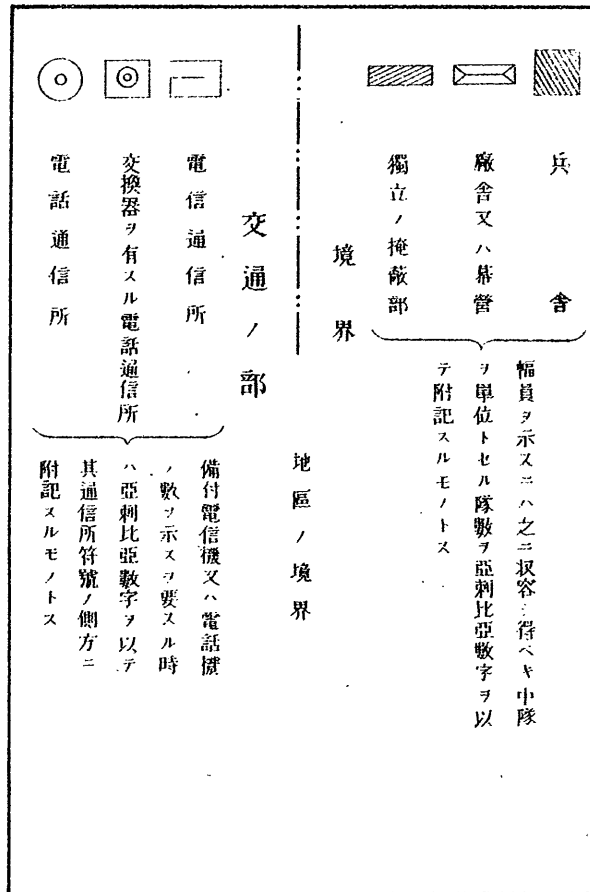 兵舍
廠舍又ハ幕營
獨立ノ掩蔽部
幅員ヲ示スニハ之ニ収容シ得ベキ中隊
ヲ單位トセル隊數ヲ亞剌比亞數字ヲ以
テ附記スルモノトス
境界
地區ノ境界
交通ノ部
電信通信所
交換器ヲ有スル電話通信所
電話通信所
備付電信機又ハ電話機
ノ數ヲ示スヲ要スル時
ハ亞剌比亞數字ヲ以テ
其通信所符號ノ側方ニ
附記スルモノトス